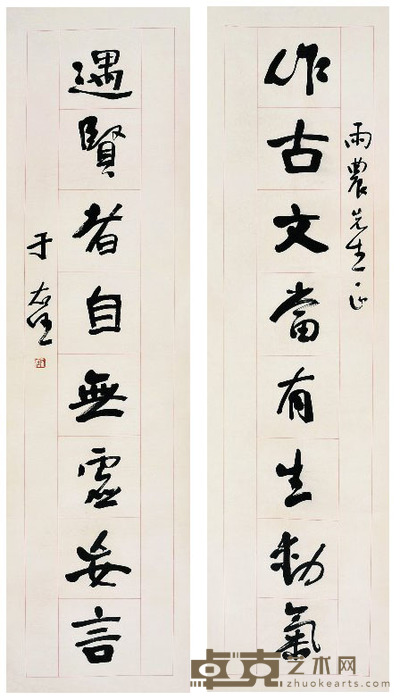 雨農先生正
作古文當有生動氣
遇賢者自無虛妄言
于右任
卓克艺术网
zhuokearts.com